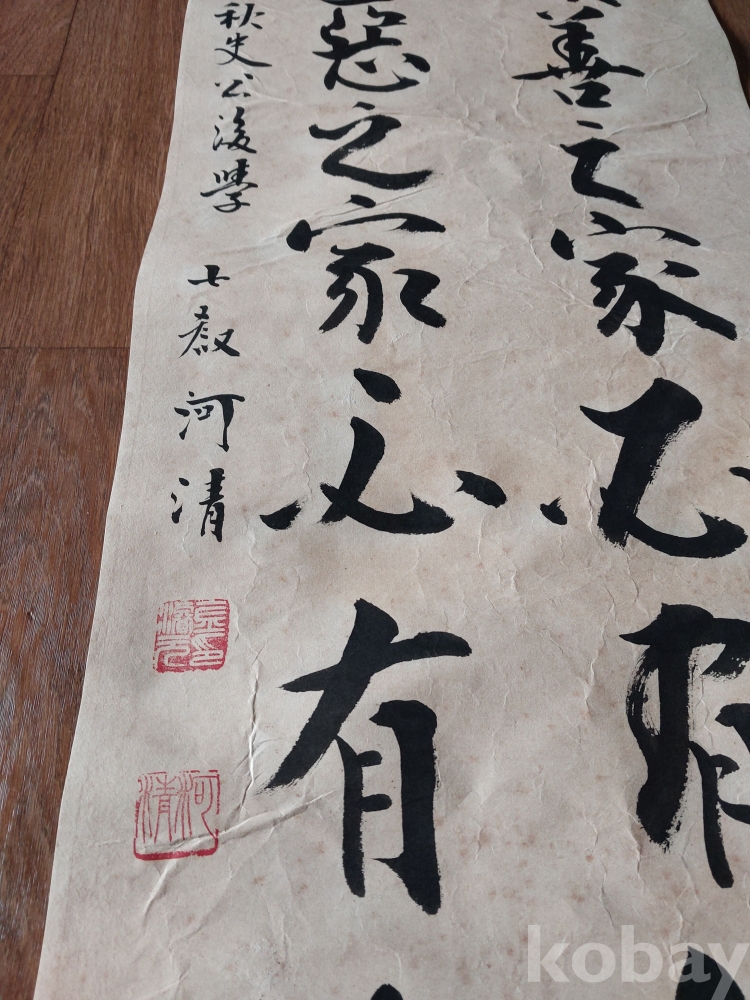 善之家必有
惡之家必有
秋史公後學
河清
河清
kobay